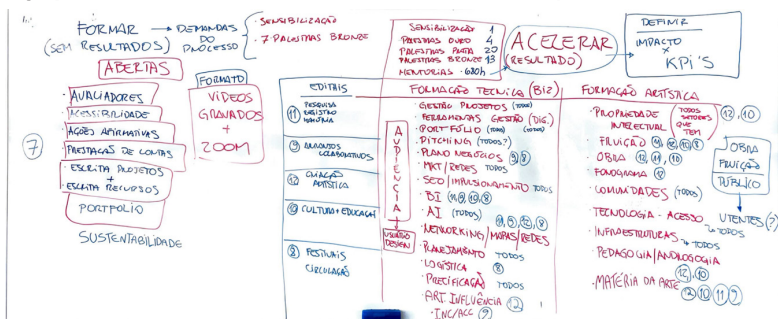 FORMAR → DEMANDAS
(SEM RESULTADOS) DO
PROCESSO
· SENSIBILIZAÇÃO
· 7 PALESTRAS BRONZE
ABERTAS
· AVALIADORES
ACESSIBILIDADE
· AÇÕES AFIRMATIVAS
· PRESTAÇÃO DE CONTAS
· ESCRITA PROJETOS
+
ESCRITA RECURSOS
PORTFOLIO
SUSTENTABILIDADE
7
FORMATO
VÍDEOS
GRAVADOS
+
ZOOM
SENSIBILIZAÇÃO 1
PALESTRAS OURO 4
PALESTRAS PRATA 20
PALESTRAS BRONZE 13
MENTORIAS · 680h
ACELERAR
(RESULTADO)
DEFINIR
IMPACTO
X
KPI'S
EDITAIS
11 PESQUISA
REGISTRO
MEMÓRIA
9 ARRANJOS
COLABORATIVOS
12 CRIAÇÃO
ARTÍSTICA
10 CULTURA + EDUCAÇÃO
8 FESTIVAIS
CIRCULAÇÃO
AUDIENCIA
USUÁRIO
DESIGN
FORMAÇÃO TECNICA (BIZ)
· GESTÃO PROJETOS (TODOS)
· FERRAMENTAS GESTÃO (DIG.)
· PORTFOLIO (TODOS) (TODOS)
· PITCHING (TODOS?)
· PLANO NEGÓCIOS 9 8
· MKT/REDES TODOS
· SEO/IMPULSIONAMENTO TODOS
· BI 11 9 10 8
· AI (TODOS)
11 9 12 8
· NETWORKING/MAPAS/REDES
· PLANEJAMENTO TODOS
· LOGÍSTICA 8
· PRECIFICAÇÃO TODOS
· ART. INFLUÊNCIA 12
· INC/ACC 9
FORMAÇÃO ARTÍSTICA
· PROPRIEDADE
INTELECTUAL (TODOS
SETORES
QUE
TEM) 12, 10
· FRUIÇÃO
· OBRA 12, 11, 10
· FONOGRAMA 12
· COMUNIDADES (TODOS)
· TECNOLOGIA - ACESSO
→ TODOS
· INFRAESTRUTURAS
→ TODOS
· PEDAGOGIA/ANDRAGOGIA
12, 10
· MATÉRIA DA ARTE 12 10 11 9
OBRA
FRUIÇÃO
PÚBLICO
UTENTES (?)